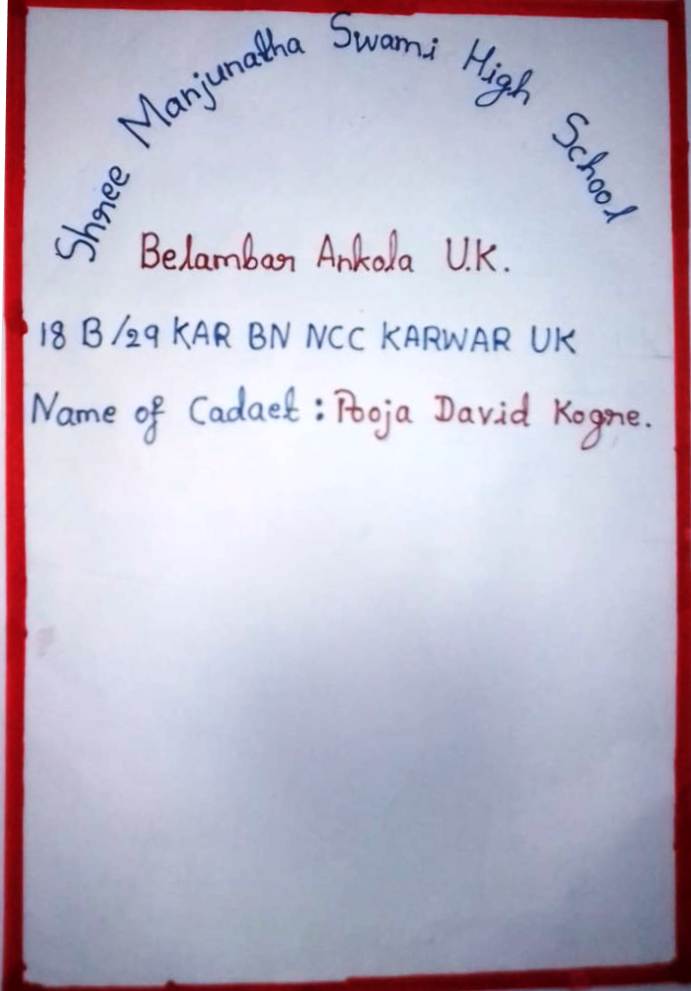 Shree Manjunatha Swami High School
Belambar Ankola U.K.
18 B/29 KAR BN NCC KARWAR UK
Name of Cadaet : Pooja David Kogre.